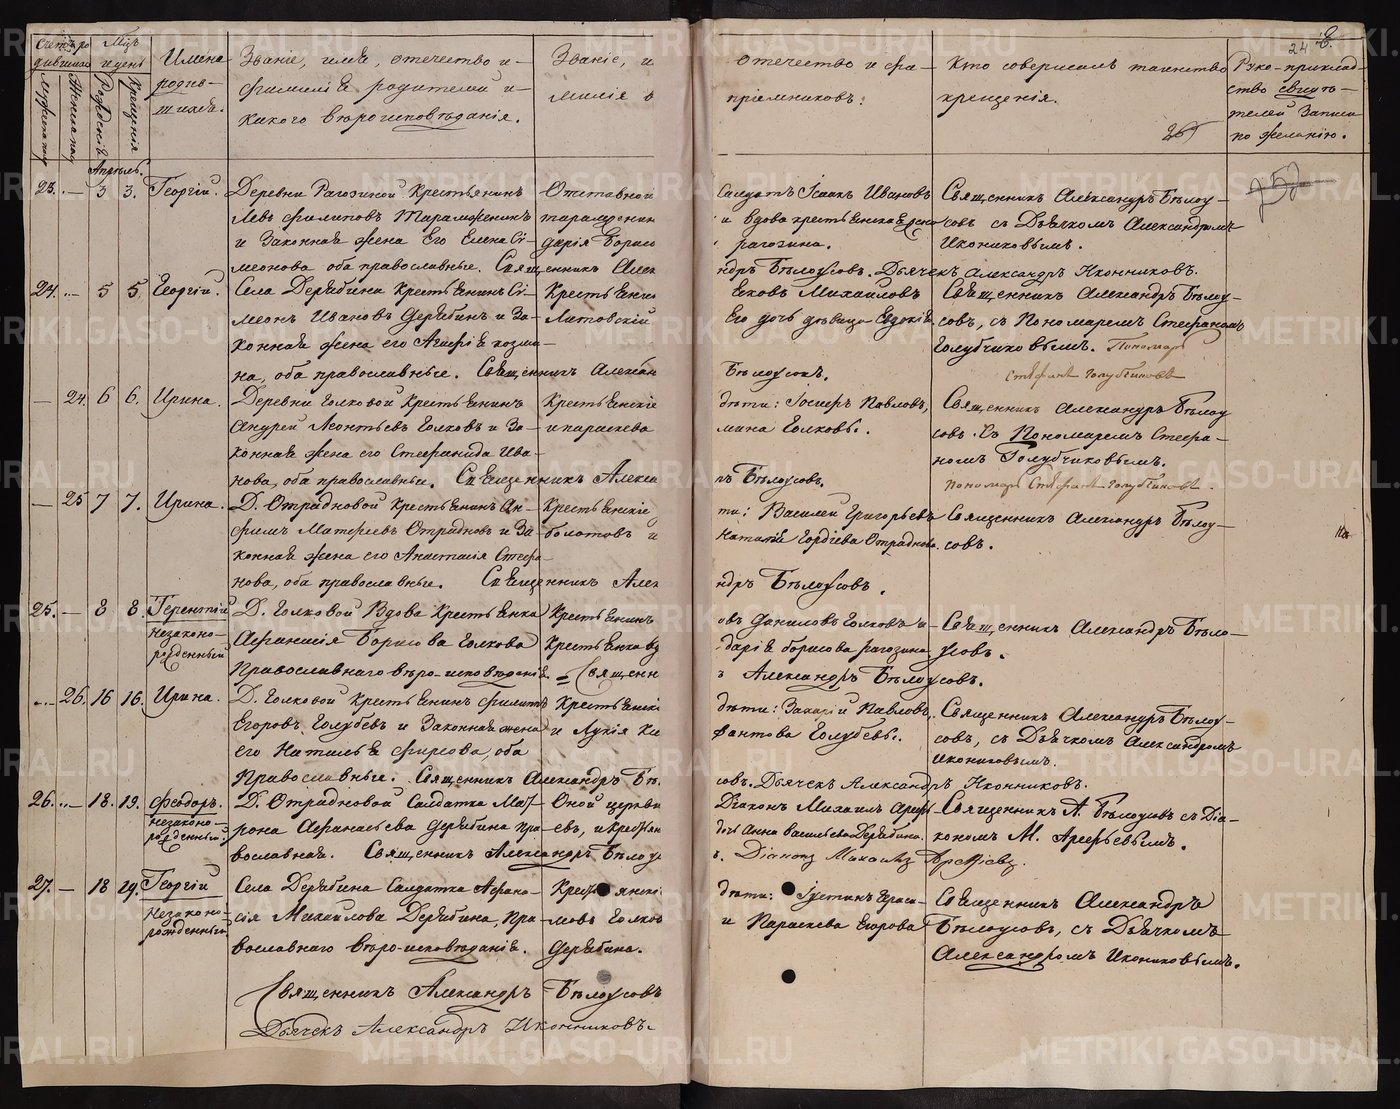 Счетъ ро
дившихся
Мужеска полу
Женска полу
Мѣс.
и день
Рожденія
Крещенія
Имена
родив-
шихся.
Званіе, имя, отечество и
фамилія родителей и
какого вѣроисповѣданія.
Званіе, и
милія в
отечество и фа-
пріемниковъ.
Кто совершалъ таинство
крещенія.
24
Руко-приклад-
ство свидѣ-
телей записи
по желанію.
Апрель.
23. — 3 3. Георгій. Деревни Рагозиной Крестьянинъ Отставной
Левъ Филиповъ Тараженинъ
и Законная жена Его Елена Си-
меонова оба православные. Священникъ Алек
солдатъ Исаакъ Ивановъ
и вдова крестьянска
рагозина.
ндръ Бѣлоусовъ. Дьячекъ Александръ Иконниковъ.
Священникъ Александръ Бѣлоу-
совъ съ Дьячкомъ Александромъ
Икониковымъ.
24. — 5 5. Георгій. Села Дерябина Крестьянинъ Си-
меонъ Ивановъ Дерябинъ и За-
конная жена его Агафія козми-
на, оба православные. Священникъ Алексан
Крестьянин
Яковъ Михаиловъ
Его дочь дѣвица Евдокія
Бѣлоусовъ.
Священникъ Александръ Бѣлоу-
совъ, съ Пономаремъ Стефаномъ
Голубчиковымъ. Пономарь
Стефанъ Голубчиковъ
— 24. 6 6. Ирина. Деревни Голковой Крестьянинъ
Андрей Леонтьевъ Голковъ и За-
конная жена его Стефанида Ива-
нова, оба православные. Священникъ Алекса
Крестьянскіе
и параскева
дѣти: Іосифъ Павловъ,
мина Голковы.
нъ Бѣлоусовъ.
Священникъ Александръ Бѣлоу
совъ. Съ Пономаремъ Стефа-
номъ Голубчиковымъ.
пономарь Стефанъ Голубчиковъ.
— 25 7 7. Ирина. Д. Отрадновой Крестьянинъ Ан-
фимъ Матфеевъ Отрадновъ и За-
конная жена его Анастасія Стефа-
нова, оба православные. Священникъ Алек
Крестьянскіе
болотовъ и
ти: Василей Григорьевъ
Наталія Гордіева Отраднова.
ндръ Бѣлоусовъ.
Священникъ Александръ Бѣлоу-
совъ.
25. — 8 8. Терентій
незаконо-
рожденный
Д. Голковой Вдова Крестьянка
Афанасія Борисова Голкова
Православнаго вѣро-исповѣданія. = Священн
Крестьянинъ
Крестьянка вд
овъ Даниловъ Голковъ и
дарія Борисова рагозина
ъ Александръ Бѣлоусовъ.
Священникъ Александръ Бѣло-
усовъ.
— 26. 16 16. Ирина. Д. Голковой Крестьянинъ Филипъ
Егоровъ Голубевъ и Законная жена
его Наталья Фирсова, оба
Православные. Священникъ Александръ Бѣ.
Крестьянскі
и Лукія
дѣти: Захарій Павловъ,
Голубевы.
совъ. Дьячекъ Александръ Иконниковъ.
Священникъ Александръ Бѣлоу-
совъ, съ Дьячкомъ Александромъ
Икониковымъ.
26. — 18. 19. Феодоръ.
незаконо-
рожденный
Д. Отрадновой Солдатка Мат-
рона Афанасьева Дерябина пра-
вославная. Священникъ Александръ Бѣлоу
Оной церкви
Діаконъ Михаилъ Ареф-
дочь Анна Васильева Дерябина.
ъ. Діаконъ Михаилъ Арефьевъ.
Священникъ А. Бѣлоусовъ съ Діа-
кономъ М. Арефьевымъ.
27. — 18 29. Георгій
Незаконо-
рожденный
Села Дерябина Солдатка Афана-
сія Михаилова Дерябина, Пра-
вославнаго вѣро-исповѣданія.
Крестьянскі
мовъ Голков
Дерябина.
дѣти: Іустинъ Ераси-
и Параскева Егорова
Священникъ Александръ
Бѣлоусовъ, съ Дьячкомъ
Александромъ Икониковымъ.
Священникъ Александръ Бѣлоусовъ
Дьячекъ Александръ Иконниковъ.
METRIKI.GASO-URAL.RU